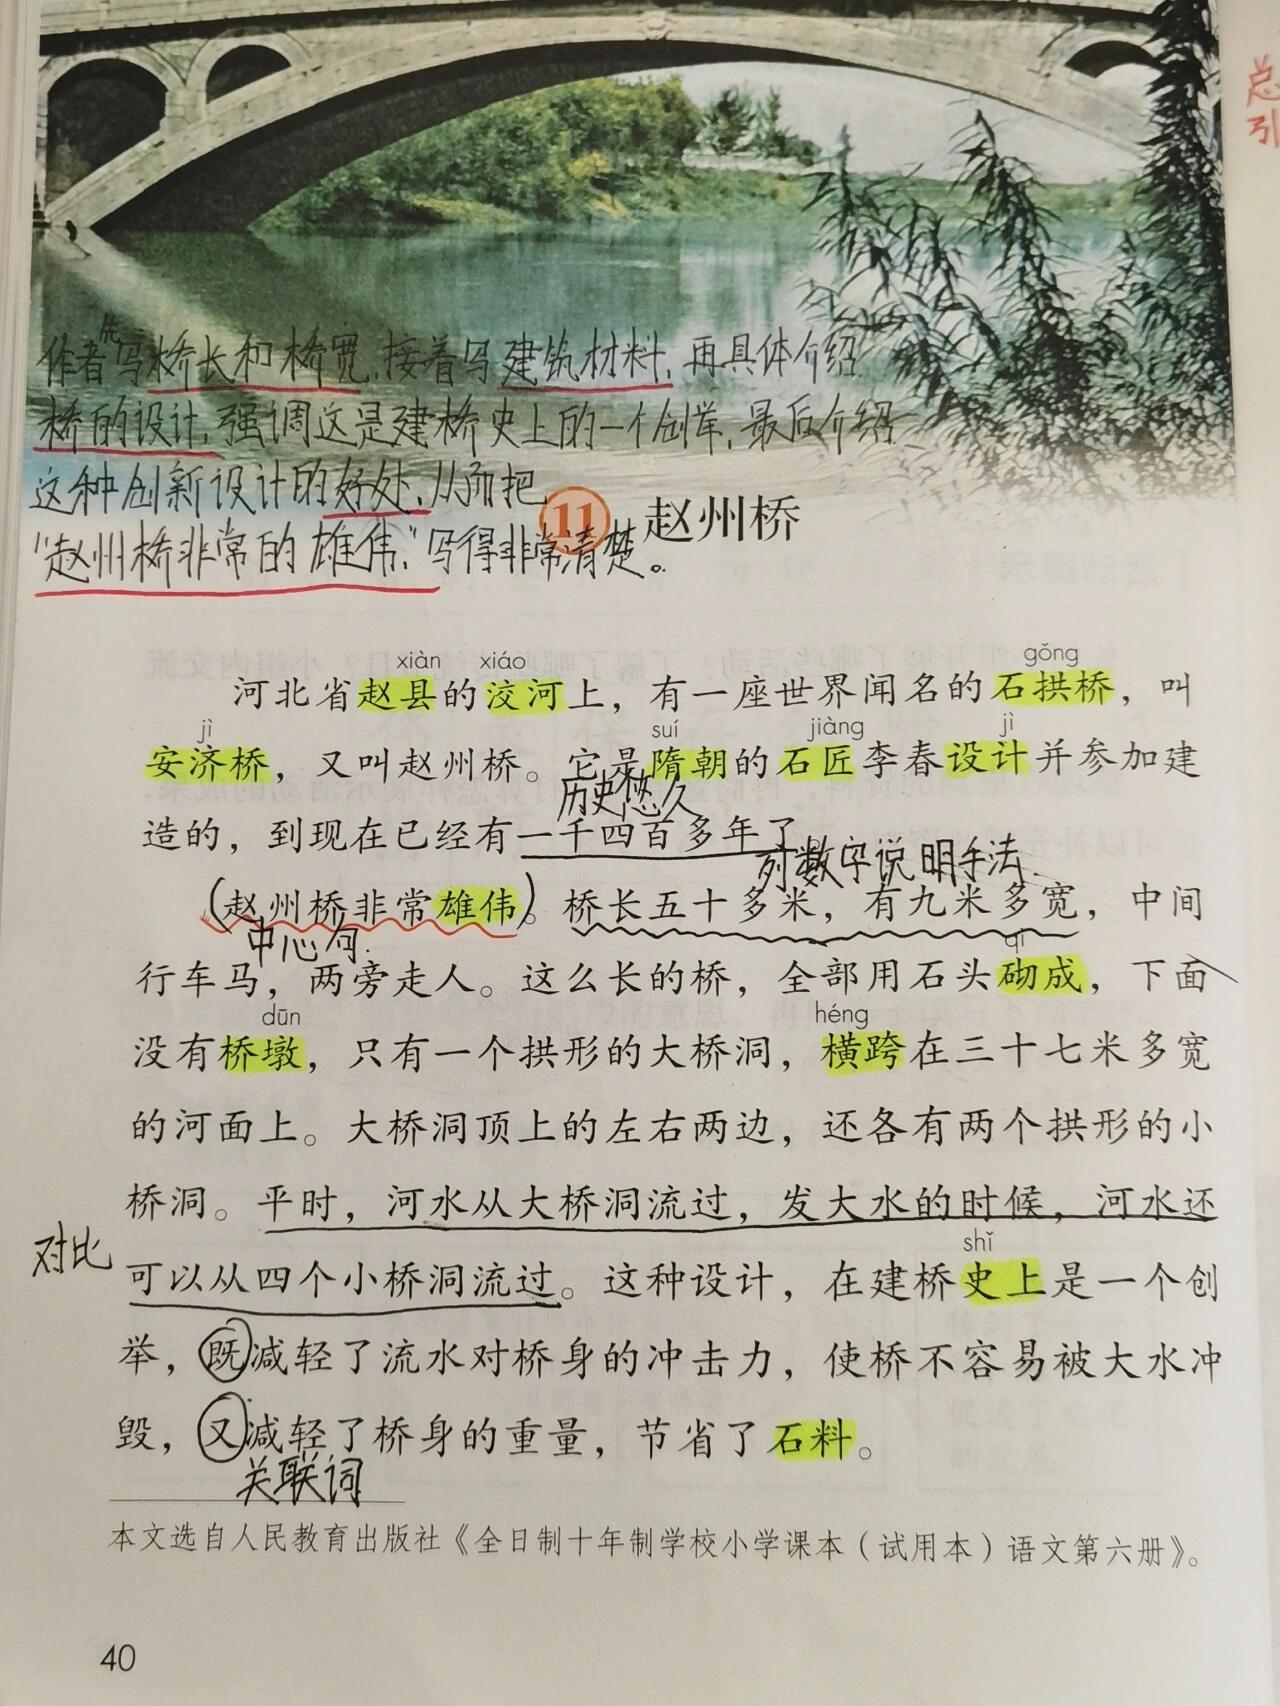 总
引
先
作者写桥长和桥宽,接着写建筑材料,再具体介绍
桥的设计,强调这是建桥史上的一个创举,最后介绍
这种创新设计的好处,从而把
“赵州桥非常的雄伟,”写得非常清楚。
11 赵州桥
xiàn xiáo gǒng
河北省赵县的洨河上，有一座世界闻名的石拱桥，叫
jì suí jiàng jì
安济桥，又叫赵州桥。它是隋朝的石匠李春设计并参加建
历史悠久
造的，到现在已经有一千四百多年了
列数字说明手法
(赵州桥非常雄伟)。桥长五十多米，有九米多宽，中间
中心句.
qì
行车马，两旁走人。这么长的桥，全部用石头砌成，下面
dūn héng
没有桥墩，只有一个拱形的大桥洞，横跨在三十七米多宽
的河面上。大桥洞顶上的左右两边，还各有两个拱形的小
桥洞。平时，河水从大桥洞流过，发大水的时候，河水还
对比
shǐ
可以从四个小桥洞流过。这种设计，在建桥史上是一个创
举，既减轻了流水对桥身的冲击力，使桥不容易被大水冲
毁，又减轻了桥身的重量，节省了石料。
关联词
本文选自人民教育出版社《全日制十年制学校小学课本（试用本）语文第六册》。
40